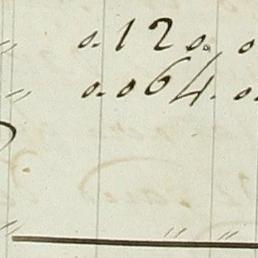 " 0. 12 0. 0
" 0. 064. 0.
" " "